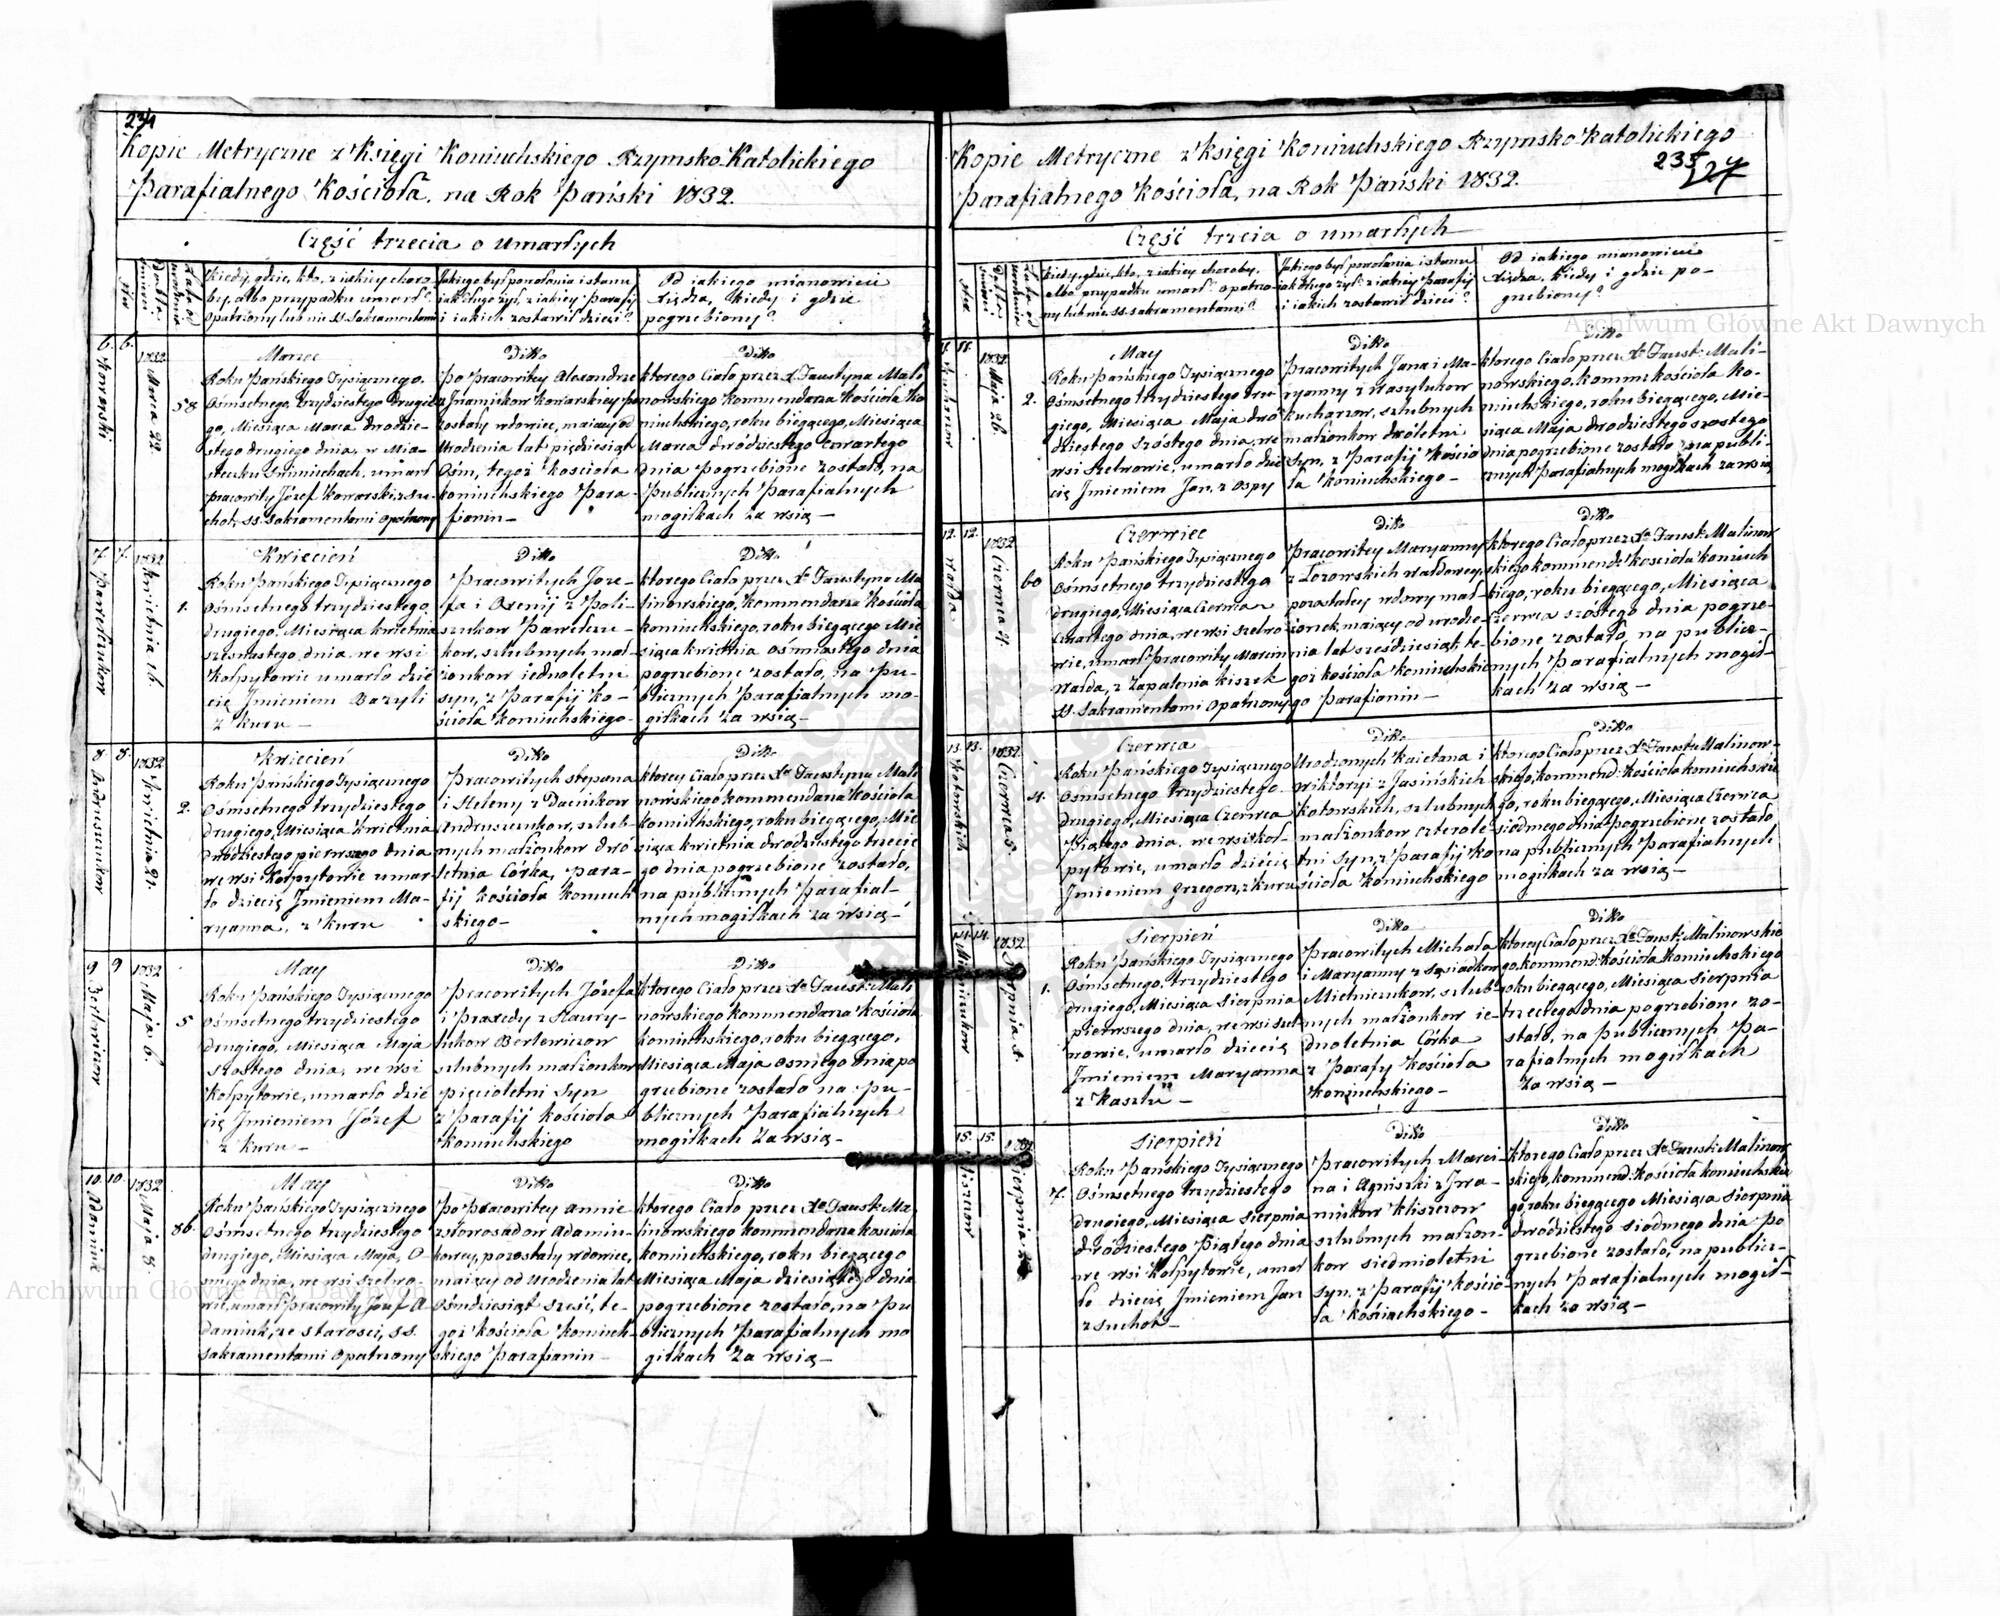 234
Kopie Metryczne z Księgi Koniuchskiego Rzymsko-Katolickiego
Parafialnego Kościoła, na Rok Pański 1832.
Część trzecia o umarłych
Kiedy, gdzie, kto, z iakiey choro-
by, albo przypadku umarł?
Opatrzony lub nie SS. Sakramentami
Jakiego był powołania i stanu
iak długo żył, z iakiey Parafij
i iakich zostawił dzieci?
Od iakiego mianowicie
Xiędza, kiedy i gdzie
pogrzebiony?
6. 6.
Konarski
1832 Marca 22
58
Marzec
Roku Pańskiego Tysiącznego
Ośmsetnego, trzydziestego drugie-
go, Miesiąca Marca dwódzie-
stego drugiego dnia, w Mia-
steczku Swiniuchach, umarł
pracowity Józef Konarski, z su-
chot, SS. Sakramentami Opatrzony
Ditto
Po Pracowitey Alexandrze
z Jnamiukow Konarskiey po-
zostały wdowiec, maiący od
Urodzenia lat pięćdziesiąt
Ośm, tegoż Kościoła
Koniuchskiego Para-
fianin-
Ditto
ktorego Ciało przez X. Faustyna Mali-
nowskiego Kommendarza Kościoła Ko-
niuchskiego, roku biegącego, Miesiąca
Marca dwódziestego czwartego
dnia pogrzebione zostało, na
Publicznych Parafialnych
mogiłkach za wsią-
7. 7.
Pawelczukow
1832 Kwietnia 16.
1.
Kwiecień
Roku Pańskiego Tysiącznego
Ośmsetnego trzydziestego
drugiego, Miesiąca Kwietnia
szesnastego dnia, we wsi
Kołpytowie umarło dzie-
cię Jmieniem Bazyli
z kuru-
Ditto
Pracowitych Joze-
fa i Orenij z Poli-
szukow Pawelczu-
kow, szlubnych mał-
żonkow iednoletni
syn, z Parafij Ko-
ścioła Koniuchskiego-
Ditto
ktorego Ciało przez Xa Faustyna Ma-
linowskiego, Kommendarza Kościoła
Koniuchskiego, roku biegącego Mie-
siąca Kwietnia Ośmnastego dnia
pogrzebione zostało, na Pu-
blicznych Parafialnych mo-
giłkach za wsią-
8. 8.
Andruszczukow
1832 Kwietnia 21.
2.
Kwiecień
Roku Pańskiego Tysiącznego
Ośmsetnego trzydziestego
drugiego, Miesiąca Kwietnia
dwódziestego pierwszego dnia
we wsi Kołpytowie umar-
ło dziecię Jmieniem Ma-
ryanna, z kuru
Ditto
Pracowitych Stepana
i Heleny z Daciukow
Andruszczukow, szlub-
nych małżonkow dwó-
letnia Córka, Para-
fij Kościoła Koniuch-
skiego-
Ditto
ktorey Ciało przez Xa Faustyna Mali-
nowskiego Kommendarza Kościoła
Koniuchskiego, roku biegącego, Mie-
siąca Kwietnia dwódziestego trzecie-
go dnia pogrzebione zostało,
na publicznych Parafial-
nych mogiłkach za wsią-
9 9
1832 Maja 6.
5
May
Roku Pańskiego Tysiącznego
Ośmsetnego trzydziestego
drugiego, Miesiąca Maja
szostego dnia, we wsi
Kołpytowie, umarło dzie-
cię Jmieniem Józef
z kuru-
Ditto
Pracowitych Józefa
i Praxedy z Hawry-
lukow Bertewiczow
szlubnych małżonkow
pięcioletni syn
z Parafij Kościoła
Koniuchskiego
Ditto
ktorego Ciało przez Xa Faust: Mali-
nowskiego Kommendarza Kościoła
Koniuchskiego, roku biegącego,
Miesiąca Maja Osmego dnia po-
grzebione zostało na Pu-
blicznych Parafialnych
mogiłkach za wsią-
10. 10.
Adamiuk
1832 Maja 8.
86.
May
Roku Pańskiego Tysiącznego
Ośmsetnego trzydziestego
drugiego, Miesiąca Maja, O-
smego dnia, we wsi Szelwo-
wie, umarł Pracowity Jozef A-
damiuk, ze starosci, SS.
Sakramentami Opatrzony
Ditto
Po Pracowitey Annie
Adamiu-
kowey, pozostały wdowiec,
maiący od Urodzenia lat
Ośmdziesiąt sześć, te-
goż Kościoła Koniuch-
skiego Parafianin-
Ditto
ktorego Ciało przez Xa Faust: Ma-
linowskiego Kommendarza Kościoła
Koniuchskiego, roku biegącego
Miesiąca Maja dziesiątego dnia
pogrzebione zostało, na Pu-
blicznych Parafialnych mo-
giłkach za wsią-
Kopie Metryczne z Księgi Koniuchskiego Rzymsko-Katolickiego
235
Parafialnego Kościoła, na Rok Pański 1832.
Część trzecia o umarłych
Kiedy, gdzie, kto, z iakiey choroby,
albo przypadku umarł? Opatrzo-
ny lub nie, SS. Sakramentami?
Jakiego był powołania i stanu
iak długo żył? z iakiey Parafij
i iakich zostawił dzieci?
Od iakiego mianowicie
Xiędza, kiedy i gdzie po-
grzebiony?
11. 11.
Kucharzow
1832 Maja 26
2.
May
Roku Pańskiego Tysiącznego
Ośmsetnego trzydziestego dru-
giego, Miesiąca Maja dwó-
dziestego szóstego dnia, we
wsi Szelwowie, umarło dzie-
cię Jmieniem Jan, z Ospy
Ditto
Pracowitych Jana i Ma-
ryanny z Wasylukow
Kucharzow, szlubnych
małżonkow dwóletni
Syn, z Parafij Kościo-
ła Koniuchskiego-
Ditto
ktorego Ciało przez Xa Faust: Mali-
nowskiego, Komm: Kościoła Ko-
niuchskiego, roku biegącego, Mie-
siąca Maja dwodziestego szostego
dnia pogrzebione zostało na publi-
cznych Parafialnych mogiłkach za wsią
12. 12.
Warda
1832 Czerwca 4.
60
Czerwiec
Roku Pańskiego Tysiącznego
Ośmsetnego trzydziestego
drugiego, Miesiąca Czerwca
czwartego dnia, we wsi Szelwo-
wie, umarł Pracowity Marcin
Warda, z zapalenia kiszek
SS. Sakramentami Opatrzony
Ditto
Pracowitey Maryanny
z Łozowskich Wardowey
pozostałey wdowy mał-
żonek, maiący od urodze-
nia lat sześdziesiąt, te-
goż kościoła Koniuchskie-
go Parafianin-
Ditto
ktorego Ciało przez Xa Faust: Malinow-
skiego Kommend: Kościoła Koniuch-
skiego, roku biegącego, Miesiąca
Czerwca szóstego dnia pogrze-
bione zostało, na publicz-
nych Parafialnych mogił-
kach za wsią-
13. 13.
Kotowskich
1832 Czerwca 5.
4.
Czerwca
Roku Pańskiego Tysiącznego
Ośmsetnego trzydziestego
drugiego, Miesiąca Czerwca
Piątego dnia, we wsi Koł-
pytowie, umarło dziecię
Jmieniem Grzegorz, z kuru
Ditto
Urodzonych Kaietana i
Wiktoryi z Jasińskich
Kotowskich, szlubnych
małżonkow czterole-
tni Syn, z Parafij Ko-
ścioła Koniuchskiego
Ditto
ktorego Ciało przez Xa Faust: Malinow-
skiego, Kommend: Kościoła Koniuchskie-
go, roku biegącego, Miesiąca Czerwca
siodmego dnia Pogrzebione zostało
na publicznych Parafialnych
mogiłkach za wsią-
14. 14.
Mielniczukow
1832 Sierpnia 1.
1.
Sierpień
Roku Pańskiego Tysiącznego
Ośmsetnego, trzydziestego
drugiego, Miesiąca Sierpnia
pierwszego dnia, we wsi Szel-
wowie, umarło dziecię
Jmieniem Maryanna
z kaszlu-
Ditto
Pracowitych Michała
i Maryanny z Sąsiadkow
Mielniczukow, szlub-
nych małżonkow ie-
dnoletnia Córka
z Parafij Kościoła
Koniuchskiego-
Ditto
ktorey Ciało przez Xa Faust: Malinowskie-
go, Kommend: Kościoła Koniuchskiego
roku biegącego, Miesiąca Sierpnia
trzeciego dnia pogrzebione zo-
stało, na Publicznych Pa-
rafialnych mogiłkach
za wsią-
15. 15.
Kliszczow
7.
Sierpień
Roku Pańskiego Tysiącznego
Ośmsetnego trzydziestego
drugiego, Miesiąca Sierpnia
dwódziestego Piątego dnia
we wsi Kołpytowie, umar-
ło dziecię Jmieniem Jan
z suchot-
Ditto
Pracowitych Marci-
na i Agniszki z Jwa-
niukow Kliszczow
szlubnych małżon-
kow siedmioletni
Syn, z Parafij Kościo-
ła Koniuchskiego-
Ditto
ktorego Ciało przez Xa Faust: Malinow-
skiego, Kommend: Kościoła Koniuchskie-
go, roku biegącego Miesiąca Sierpnia
dwódziestego siodmego dnia po-
grzebione zostało, na publicz-
nych Parafialnych mogił-
kach za wsią-
Archiwum Główne Akt Dawnych
Archiwum Główne Akt Dawnych